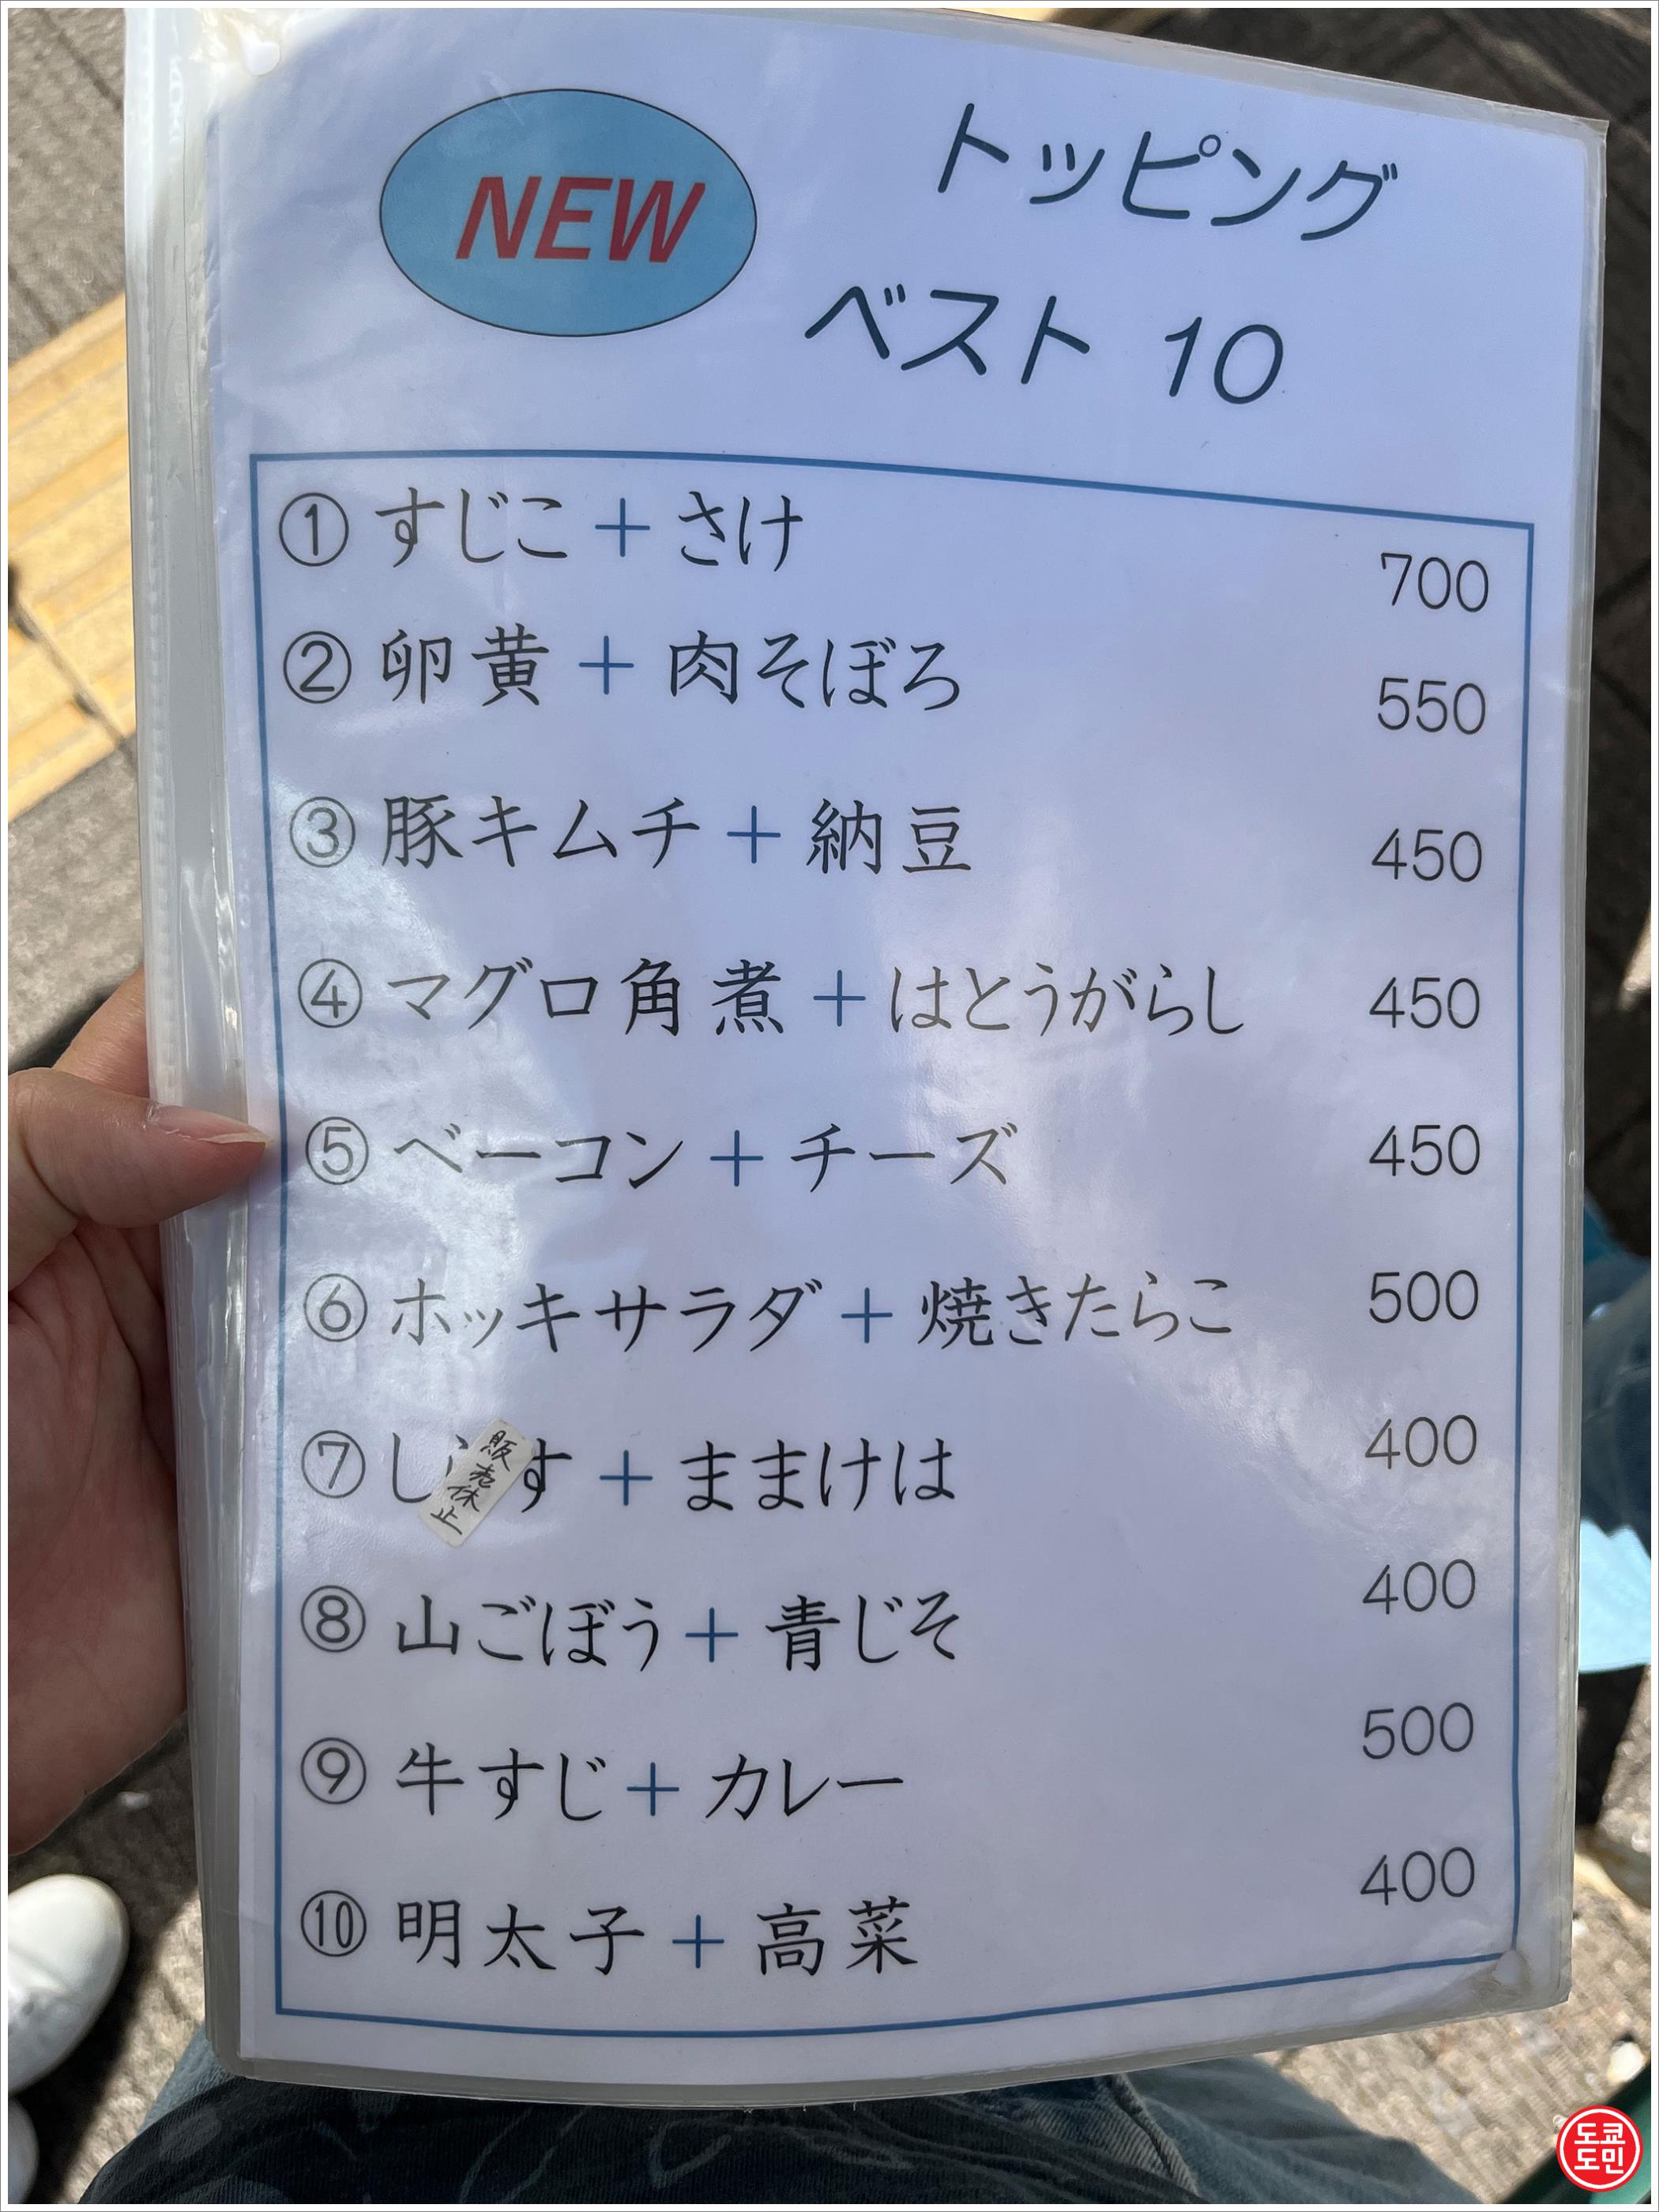 NEW
トッピング
ベスト 10
① すじこ + さけ 700
② 卵黄 + 肉そぼろ 550
③ 豚キムチ + 納豆 450
④ マグロ角煮 + はとうがらし 450
⑤ ベーコン + チーズ 450
⑥ ホッキサラダ + 焼きたらこ 500
⑦ し す + ままけは 400
販売休止
⑧ 山ごぼう + 青じそ 400
⑨ 牛すじ + カレー 500
⑩ 明太子 + 高菜 400
도쿄
도민